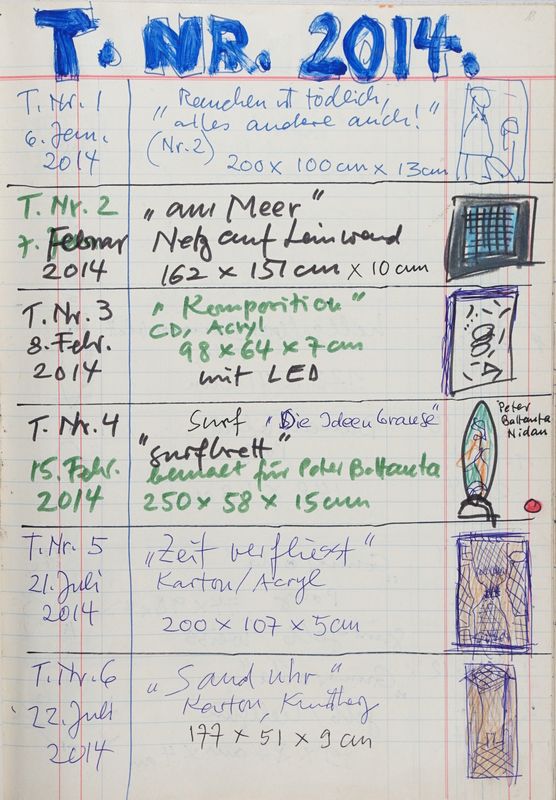 T. NR. 2014.
T. Nr. 1
6. Jan.
2014
"Rauchen ist tödlich,
alles andere auch!"
(Nr. 2)
200 x 100 cm x 13 cm
T. Nr. 2
7. Februar
2014
"am Meer"
Netz auf Leinwand
162 x 151 cm x 10 cm
T. Nr. 3
8. Febr.
2014
"Komposition"
CD, Acryl
98 x 64 x 7 cm
mit LED
T. Nr. 4
15. Febr.
2014
Surf "Die Ideenbrause"
"surfbrett"
bemalt für Peter Battanta
250 x 58 x 15 cm
Peter
Battanta
Nidau
T. Nr. 5
21. Juli
2014
"Zeit verfliesst"
Karton/Acryl
200 x 107 x 5 cm
T. Nr. 6
22. Juli
2014
"Sanduhr"
Karton,
177 x 51 x 9 cm